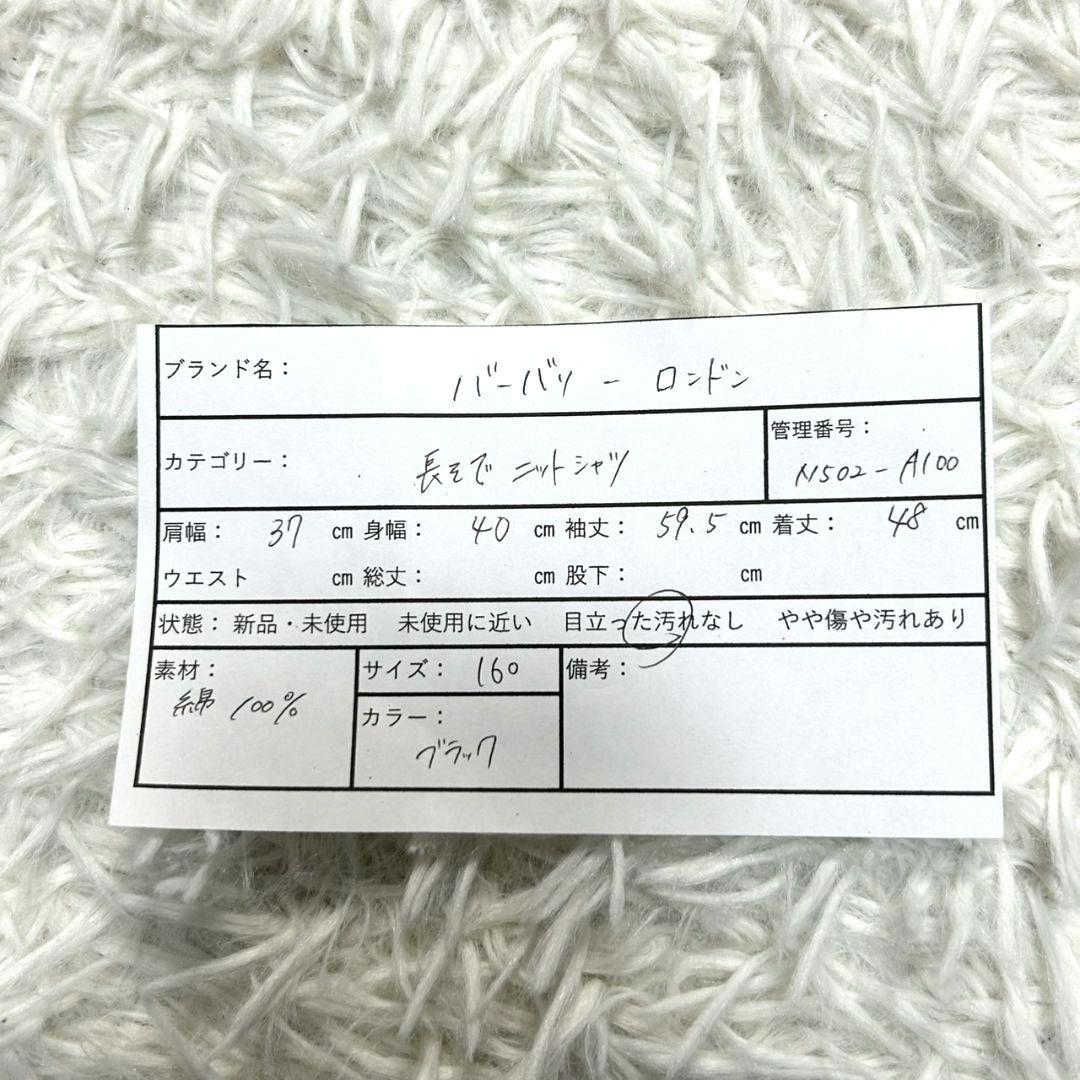 ブランド名： バーバリー ロンドン
カテゴリー： 長そで ニットシャツ
管理番号： N502-A100
肩幅： 37 ㎝ 身幅： 40 ㎝ 袖丈： 59.5 ㎝ 着丈： 48 ㎝
ウエスト ㎝ 総丈： ㎝ 股下： ㎝
状態： 新品・未使用 未使用に近い 目立った汚れなし やや傷や汚れあり
素材： 綿 100%
サイズ： 160
カラー： ブラック
備考：